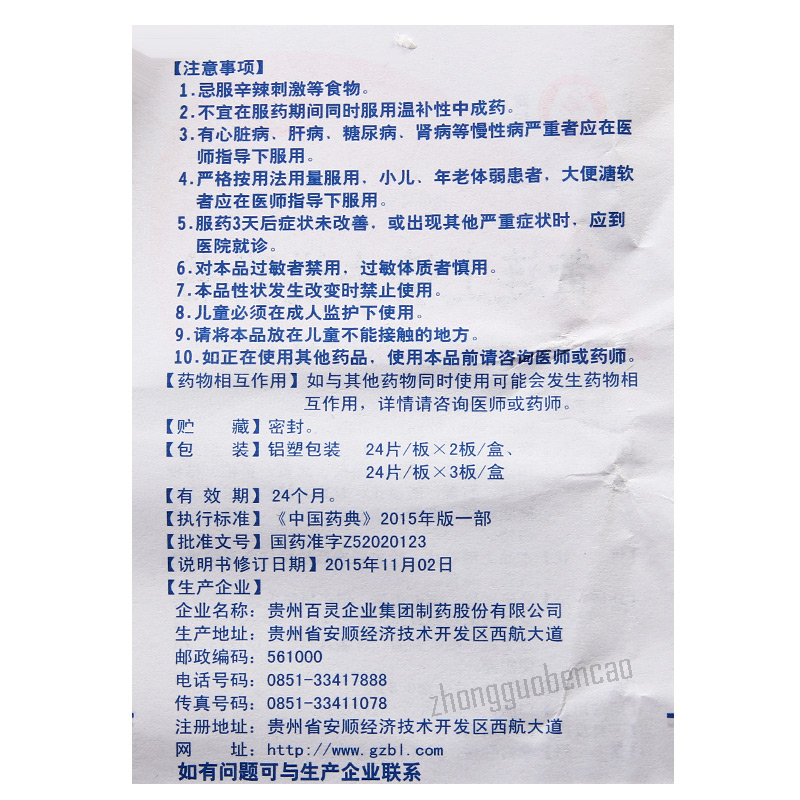 【注意事项】
1.忌服辛辣刺激等食物。
2.不宜在服药期间同时服用温补性中成药。
3.有心脏病、肝病、糖尿病、肾病等慢性病严重者应在医
师指导下服用。
4.严格按用法用量服用，小儿、年老体弱患者，大便溏软
者应在医师指导下服用。
5.服药3天后症状未改善，或出现其他严重症状时，应到
医院就诊。
6.对本品过敏者禁用，过敏体质者慎用。
7.本品性状发生改变时禁止使用。
8.儿童必须在成人监护下使用。
9.请将本品放在儿童不能接触的地方。
10.如正在使用其他药品，使用本品前请咨询医师或药师。
【药物相互作用】如与其他药物同时使用可能会发生药物相
互作用，详情请咨询医师或药师。
【贮 藏】密封。
【包 装】铝塑包装 24片/板×2板/盒、
24片/板×3板/盒
【有 效 期】24个月。
【执行标准】《中国药典》2015年版一部
【批准文号】国药准字Z52020123
【说明书修订日期】2015年11月02日
【生产企业】
企业名称：贵州百灵企业集团制药股份有限公司
生产地址：贵州省安顺经济技术开发区西航大道
邮政编码：561000
电话号码：0851-33417888
传真号码：0851-33411078
注册地址：贵州省安顺经济技术开发区西航大道
网 址：http://www.gzbl.com
如有问题可与生产企业联系
zhongguobencao